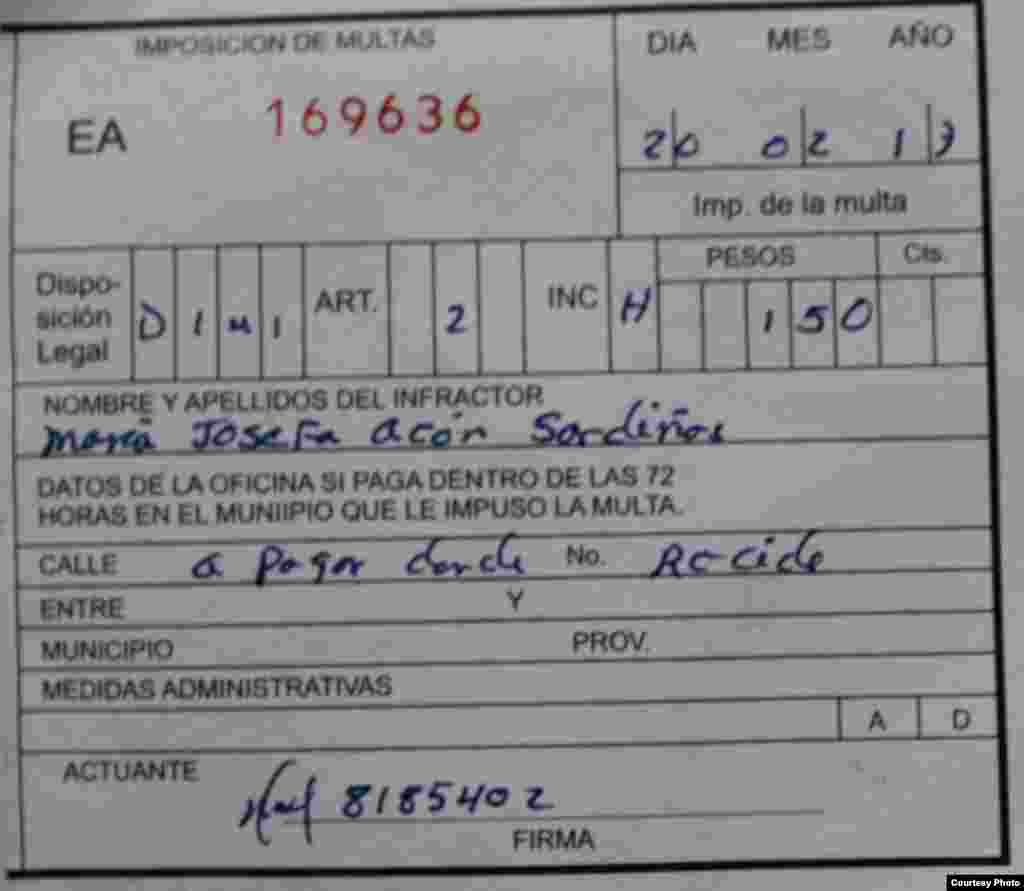 IMPOSICION DE MULTAS
DIA MES AÑO
EA 169636
20 02 17
Imp. de la multa
Dispo-
sición
Legal
D 1 4 1 ART. 2 INC H
PESOS Cts.
150
NOMBRE Y APELLIDOS DEL INFRACTOR
María Josefa Acón Sardiñas
DATOS DE LA OFICINA SI PAGA DENTRO DE LAS 72
HORAS EN EL MUNIIPIO QUE LE IMPUSO LA MULTA.
CALLE a pagar donde No. Recide
ENTRE Y
MUNICIPIO PROV.
MEDIDAS ADMINISTRATIVAS
A D
ACTUANTE
8185402
FIRMA
Courtesy Photo